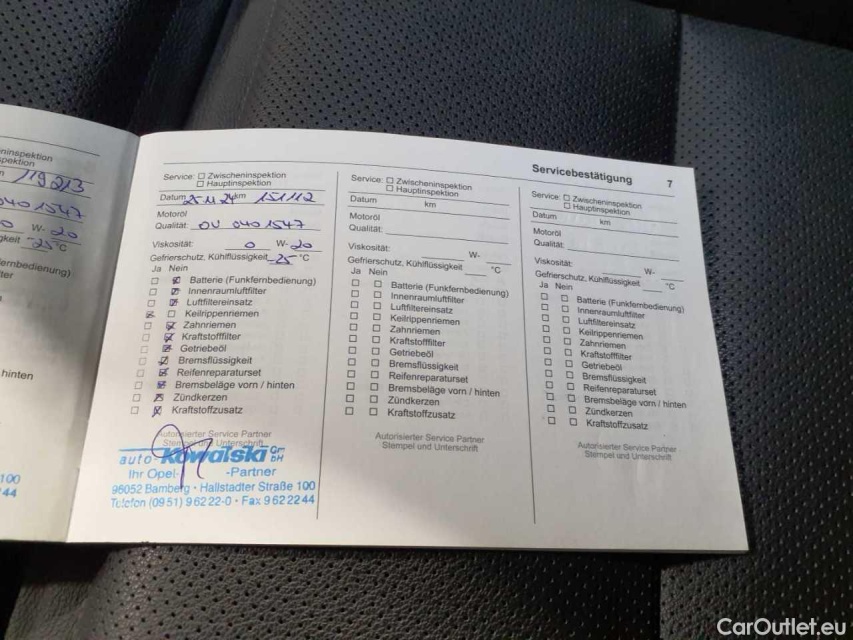 119213
040 1547
W- 20
-25 °C
hinten
100
44
Servicebestätigung 7
Service: Zwischeninspektion
Hauptinspektion
Datum 25.11.24 km 151112
Motoröl
Qualität: OV 040 1547
Viskosität: 0 W- 20
Gefrierschutz, Kühlflüssigkeit -25 °C
Ja Nein
Batterie (Funkfernbedienung)
Innenraumluftfilter
Luftfiltereinsatz
Keilrippenriemen
Zahnriemen
Kraftstofffilter
Getriebeöl
Bremsflüssigkeit
Reifenreparaturset
Bremsbeläge vorn / hinten
Zündkerzen
Kraftstoffzusatz
Autorisierter Service Partner
Stempel und Unterschrift
auto-Kowalski GmbH
Ihr Opel- -Partner
96052 Bamberg • Hallstadter Straße 100
Telefon (09 51) 9 62 22-0 • Fax 9 62 22 44
Service: Zwischeninspektion
Hauptinspektion
Datum
km
Motoröl
Qualität:
Viskosität: W-
Gefrierschutz, Kühlflüssigkeit °C
Ja Nein
Batterie (Funkfernbedienung)
Innenraumluftfilter
Luftfiltereinsatz
Keilrippenriemen
Zahnriemen
Kraftstofffilter
Getriebeöl
Bremsflüssigkeit
Reifenreparaturset
Bremsbeläge vorn / hinten
Zündkerzen
Kraftstoffzusatz
Autorisierter Service Partner
Stempel und Unterschrift
Service: Zwischeninspektion
Hauptinspektion
Datum
km
Motoröl
Qualität:
Viskosität: W-
Gefrierschutz, Kühlflüssigkeit °C
Ja Nein
Batterie (Funkfernbedienung)
Innenraumluftfilter
Luftfiltereinsatz
Keilrippenriemen
Zahnriemen
Kraftstofffilter
Getriebeöl
Bremsflüssigkeit
Reifenreparaturset
Bremsbeläge vorn / hinten
Zündkerzen
Kraftstoffzusatz
Autorisierter Service Partner
Stempel und Unterschrift
CarOutlet.eu